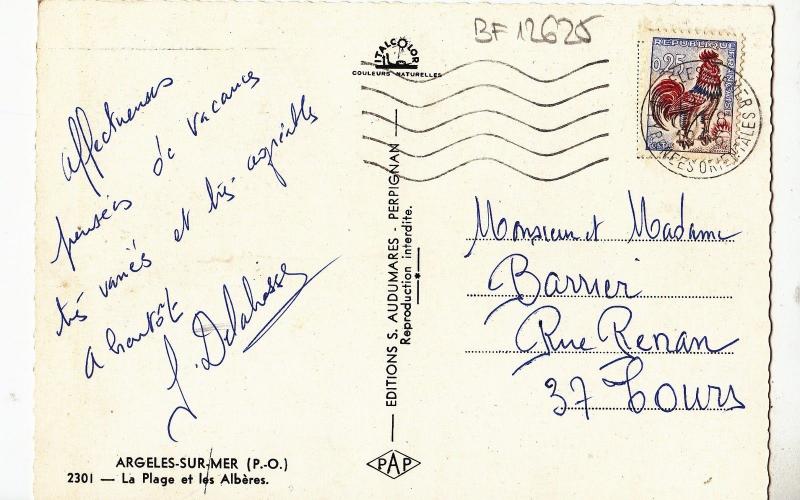 BF 12625
ITALCOLOR
COULEURS NATURELLES
REPUBLIQUE FRANÇAISE
0,25
POSTES
PYRÉNÉES ORIENTALES
affectueuses
pensées de vacances
très variés et très agréables
A bientôt
J. Delahasse
EDITIONS S. AUDUMARES - PERPIGNAN
Reproduction interdite.
Monsieur et Madame
Barrier
Rue Renan
37 Tours
ARGELES-SUR-MER (P.-O.)
2301 — La Plage et les Albères.
PAP